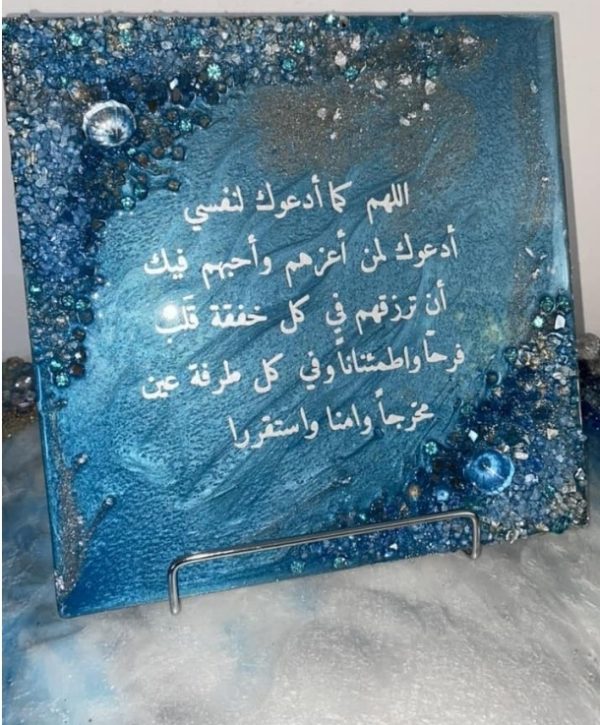 اللهم كما أدعوك لنفسي
أدعوك لمن أعزهم وأحبهم فيك
أن ترزقهم في كل خفقة قَلب
فرحاً واطمئناناً وفي كل طرفة عين
مخرجاً وامنا واستقررا